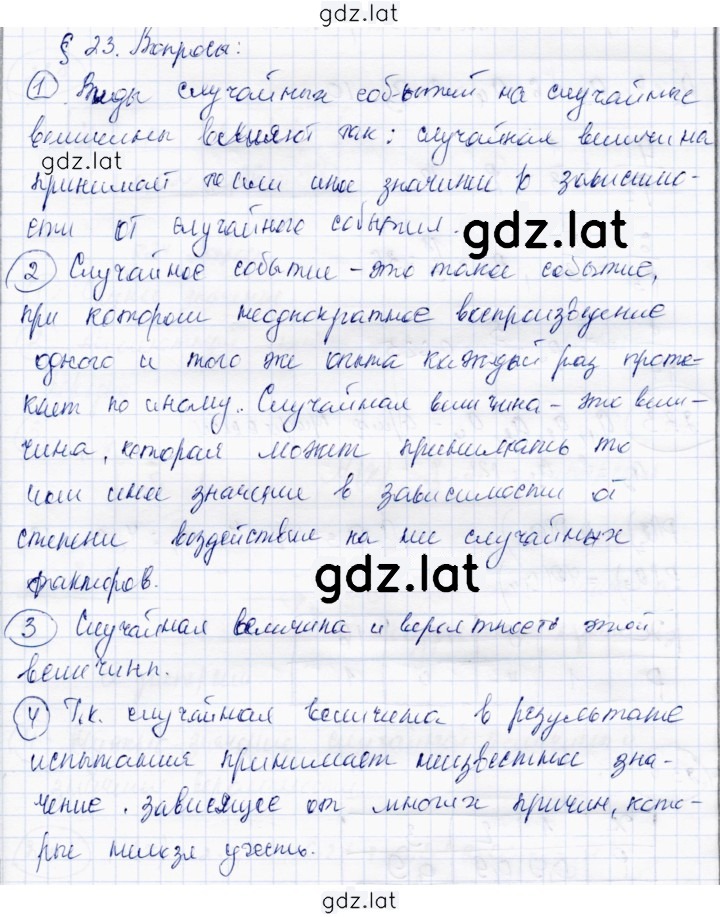 gdz.lat
§ 23. Вопросы:
1. Виды случайных событий на случайные
величины влияют так: случайная величина
gdz.lat
принимает то или иное значение в зависимо-
сти от случайного события.
gdz.lat
2 Случайное событие – это такое событие,
при котором неоднократное воспроизведение
одного и того же опыта каждый раз проте-
кает по иному. Случайная величина – это вели-
чина, которая может принимать то
или иное значение в зависимости от
степени воздействия на нее случайных
факторов.
gdz.lat
3 Случайная величина и вероятность этой
величины.
4 Т.к. случайная величина в результате
испытания принимает неизвестное зна-
чение, зависящее от многих причин, кото-
рые нельзя учесть.
gdz.lat
gdz.lat